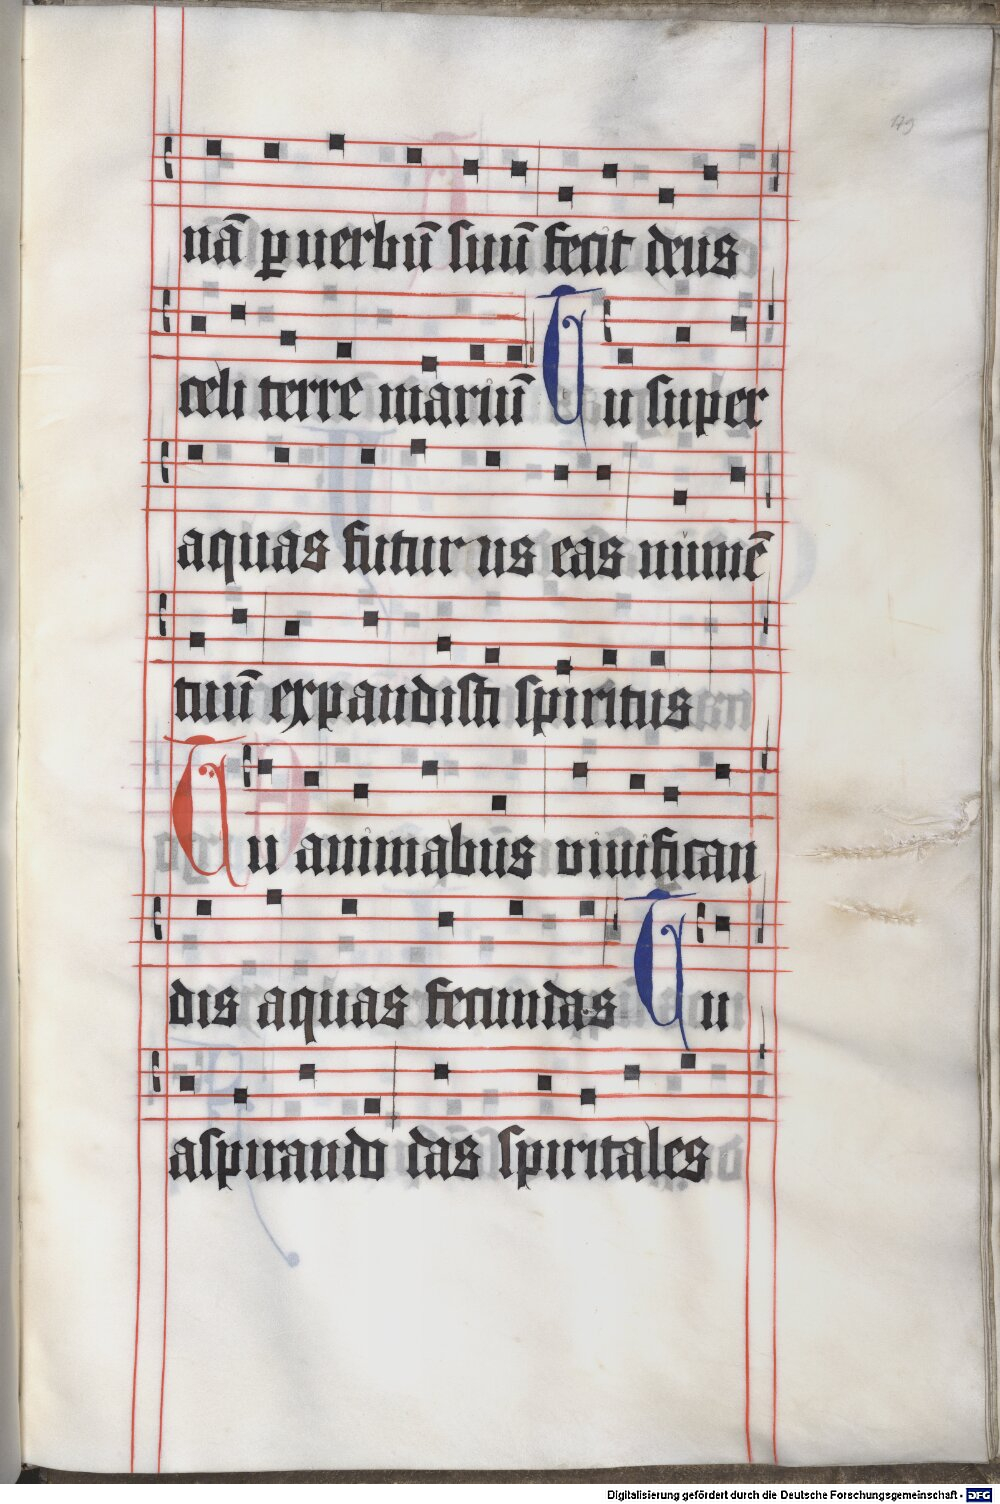 179
nā ꝑ uerbū suū fecit deus
celi terre mariū Tu super
aquas futurus eas numē
tuū expandisti spiritus
Tu animabus viuifican
dis aquas fecundas Tu
aspirando das spiritales
Digitalisierung gefördert durch die Deutsche Forschungsgemeinschaft - DFG